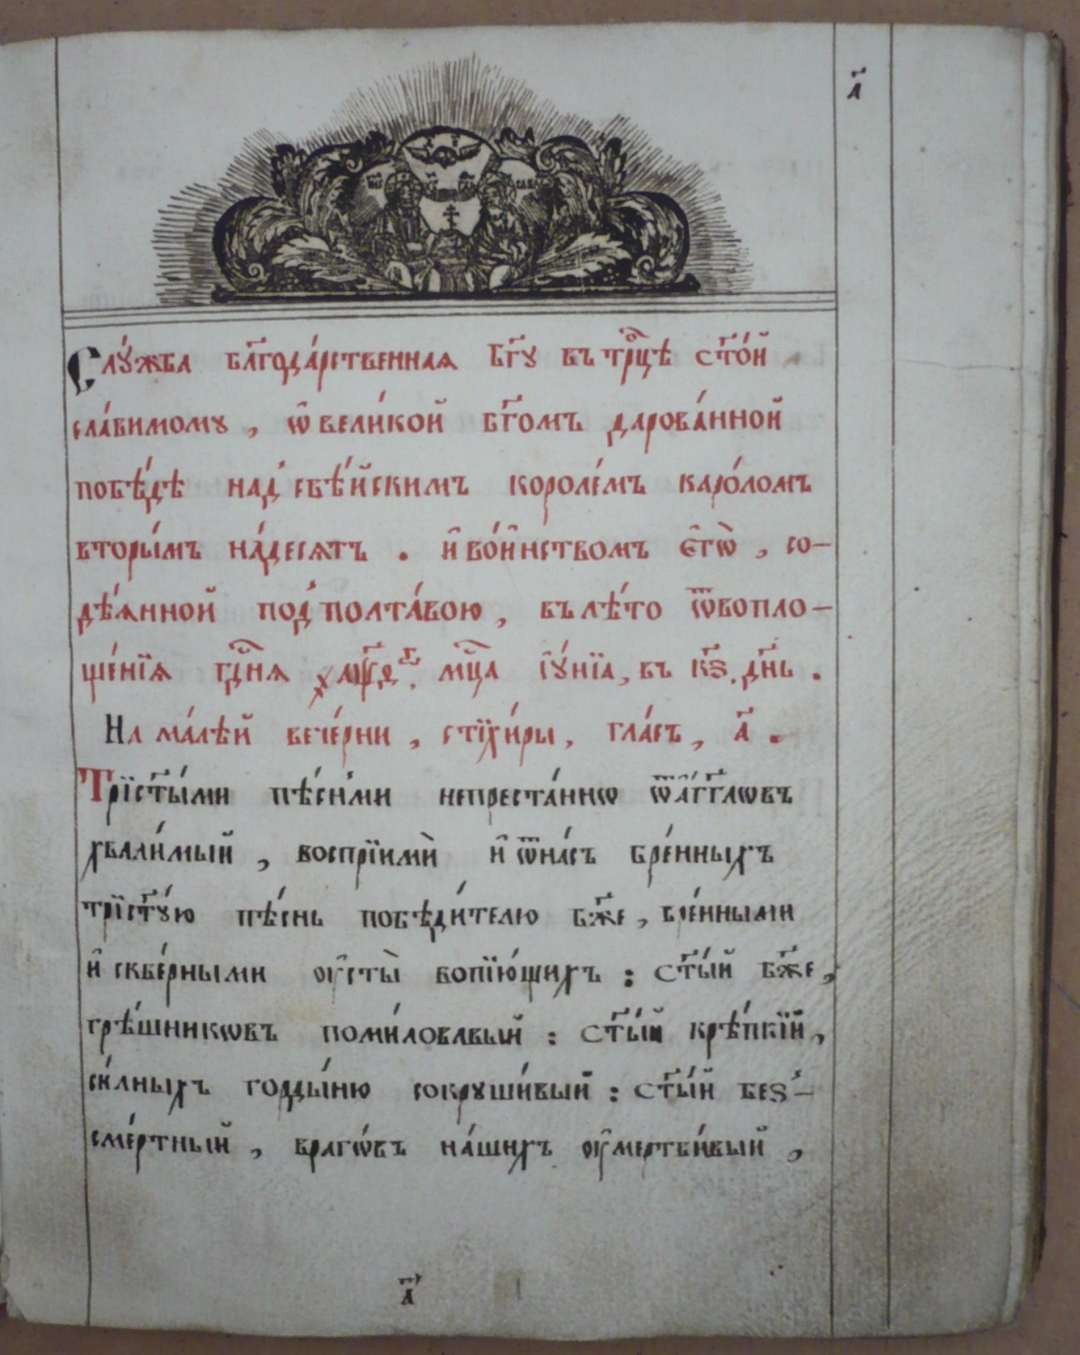 а҃
Слꙋ́жба бл҃года́рственная Бг҃ꙋ въ трⷪ҇цѣ ст҃о́й
сла́вимомꙋ, ѡ҆ вели́кой бг҃омъ дарова́нной
побѣ́дѣ над̾ свѣ́йскимъ короле́мъ каро́ломъ
вторы́мъ на́десять. и҆ во́инствомъ є҆гѡ̀, со-
дѣ́янной под̾ полта́вою, въ лѣ́то ѿ вопло-
ще́нїя гдⷭ҇ня ҂аѱ҃ѳ гѡ. мцⷭ҇а і҆ꙋ́нїа, въ кз҃. дн҃ь.
На ма́лѣй вече́рни, стїхи́ры, гла́съ, а҃.
Трїст҃ы́ми пѣ́сньми непреста́ннѡ ѿ а҆́гг҃лѡвъ
хвали́мый, воспрїимѝ и҆ ѿ на́съ бре́нныхъ
трїст҃ꙋ́ю пѣ́снь побѣди́телю бж҃е, бре́нными
и҆ скве́рными ᲂу҆сты̀ вопїю́щихъ: ст҃ы́й бж҃е,
грѣ́шникѡвъ поми́ловавый: ст҃ы́й крѣ́пкїй,
си́лныхъ горды́ню сокрꙋши́вый: ст҃ы́й без̾-
сме́ртный, врагѡ́въ на́шихъ ᲂу҆мертви́вый,
а҃